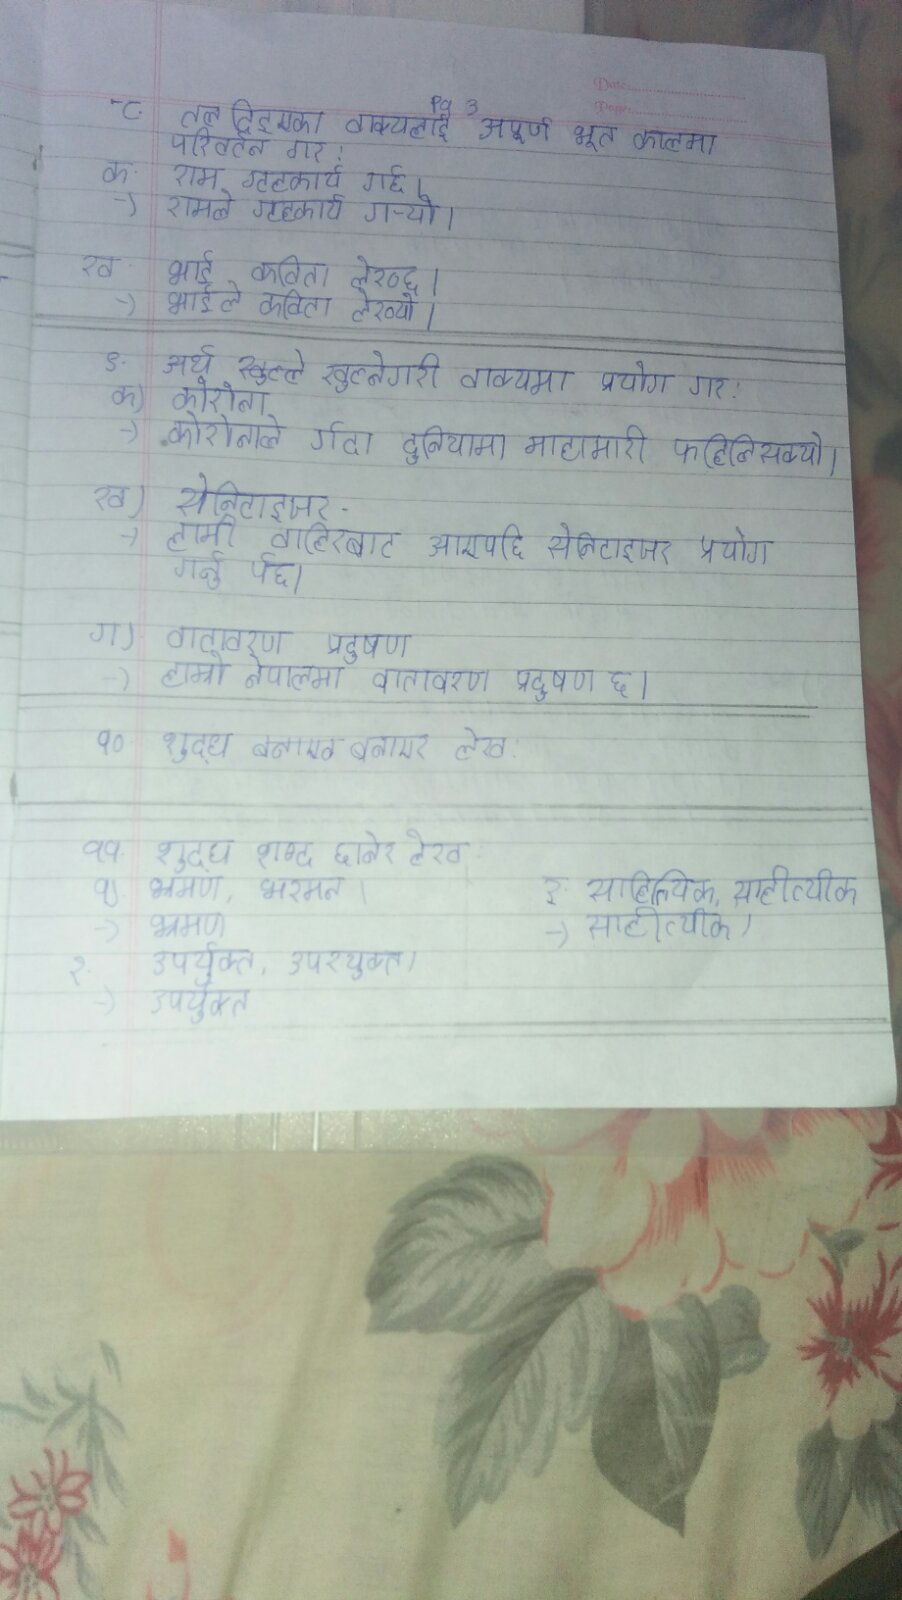 Date
Page
Pg 3
८. तल दिइएका वाक्यलाई अपूर्ण भूत कालमा
परिवर्तन गर:
क. राम गृहकार्य गर्छ।
-> रामले गृहकार्य गर्‍यो।
ख. भाई कविता लेख्छ।
-> भाईले कविता लेख्यो।
९. अर्थ खुल्ले खुल्नेगरी वाक्यमा प्रयोग गर:
क) कोरोना
-> कोरोनाले र्गदा दुनियामा माहामारी फहिलिसक्यो।
ख) सेनिटाइजर.
-> हामी बाहिरबाट आएपछि सेनिटाइजर प्रयोग
गर्नु र्पछ।
ग) वातावरण प्रदुषण
-> हाम्रो नेपालमा वातावरण प्रदुषण छ।
१० शुद्ध बनाएर लेख:
११. शुद्ध शब्द छानेर लेख:
१) भ्रमण, भरमन।
-> भ्रमण
२. उपर्युक्त, उपरयुक्त।
-> उपर्युक्त
३. साहित्यिक, साहीत्यीक
-> साहीत्यीक।